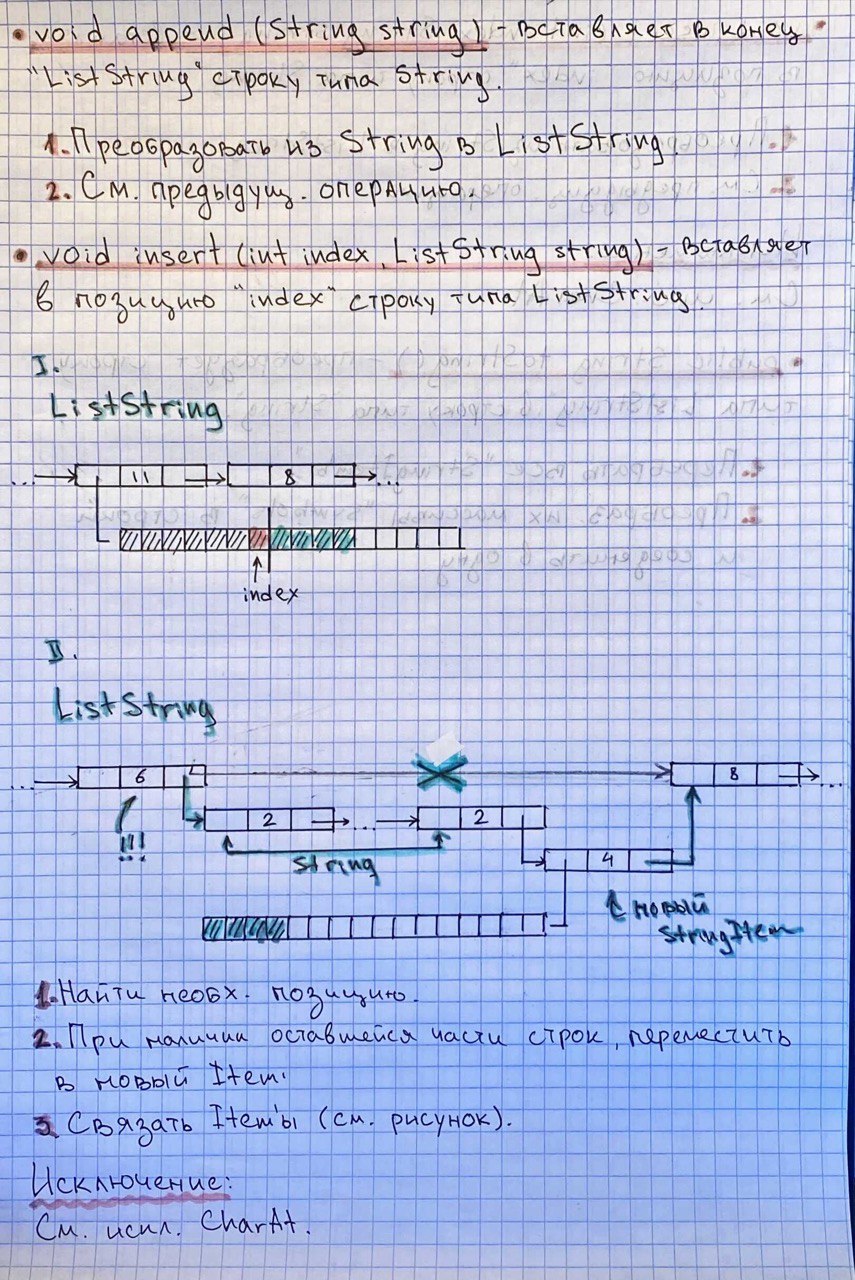 • void append (String string) - вставляет в конец
"ListString" строку типа String.
1. Преобразовать из String в ListString.
2. См. предыдущ. операцию.
• void insert (int index, ListString string) - вставляет
в позицию "index" строку типа ListString.
I.
ListString
... 11 8 ...
index
II.
ListString
... 6 8 ...
!!! 2 ... 2
String 4
новый
StringItem
1. Найти необх. позицию.
2. При наличии оставшейся части строк, переместить
в новый Item.
3. Связать Item'ы (см. рисунок).
Исключение:
См. искл. CharAt.